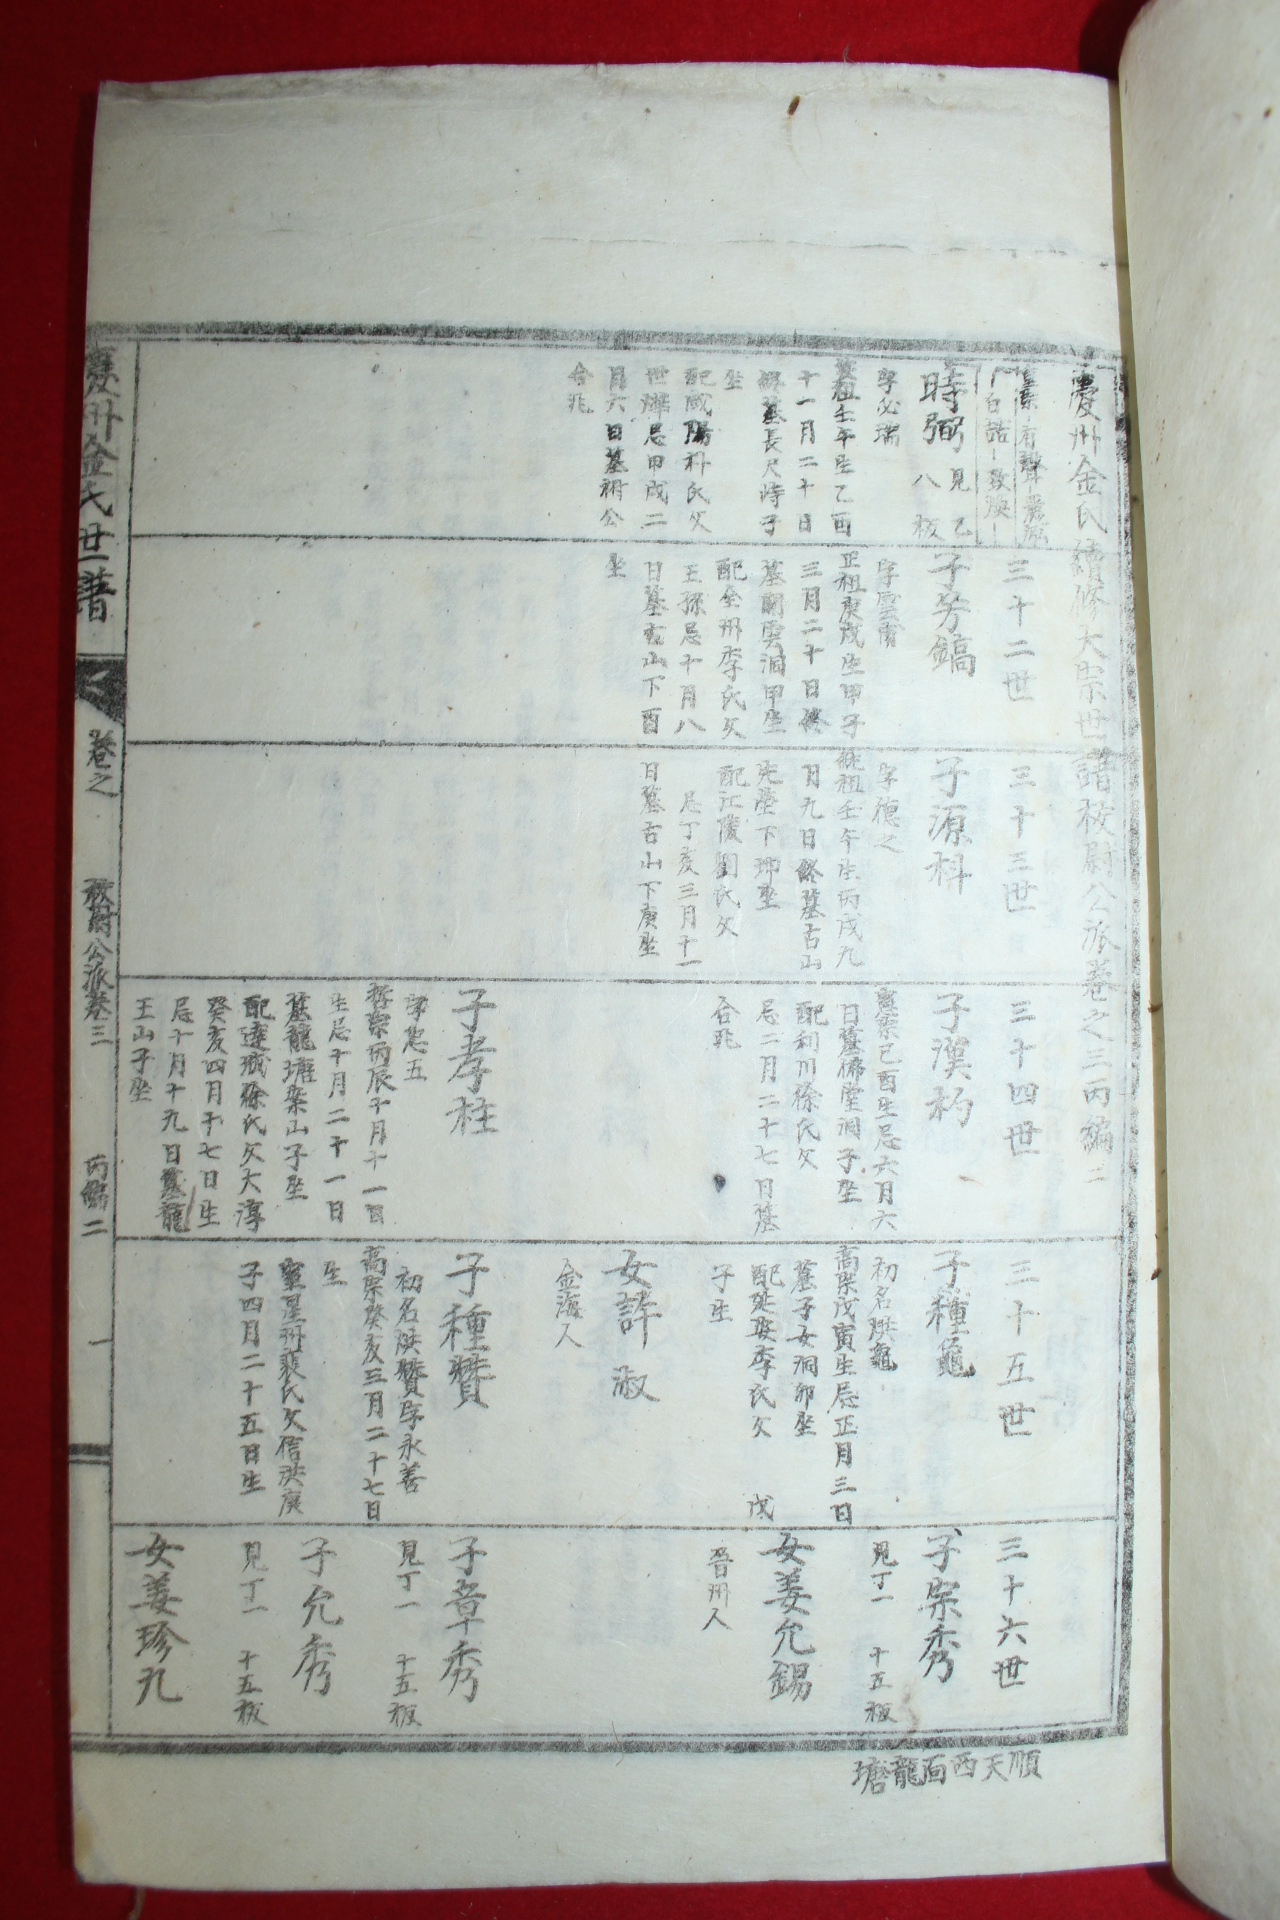 慶州金氏續修大宗世譜校尉公派卷之三丙編二
時弼 見乙
八板
字必瑞
英祖壬午生乙酉
十一月二十日
坐
配咸陽朴氏父
世燁忌甲戌二
月六日墓祔公
合兆
三十二世
子芳鎬
正祖庚戌生甲子
三月二十日終
墓開雲洞甲坐
配全州李氏父
王孫忌十月八
日墓古山下酉
坐
三十三世
子源科
字德之
純祖壬午生丙戌九
月九日終墓古山
先塋下坤坐
配江陵劉氏父
忌丁亥三月十一
日墓古山下庚坐
三十四世
子漢杓
憲宗己酉生忌六月六
日墓佛堂洞子坐
配利川徐氏父
忌二月二十七日墓
合兆
子孝柱
字忠五
哲宗丙辰十月十一日
生忌十月二十一日
墓龍塘案山子坐
配達城徐氏父大淳
癸亥四月十七日生
忌十月十九日墓龍
王山子坐
三十五世
子種龜
初名洪龜
高宗戊寅生忌正月三日
墓子女洞卯坐
配延安李氏父 戊
子生
女許淑
金海人
子種贊
初名洪贊字永善
高宗癸亥三月二十七日
生
室星州裵氏父信洪庚
子四月二十五日生
三十六世
子宗秀
見丁一 十五板
女姜允錫
晉州人
子章秀
見丁一 十五板
子允秀
見丁一 十五板
女姜珍九
慶州金氏世譜
卷之
校尉公派卷三
丙編二
一
順天西面龍瑭